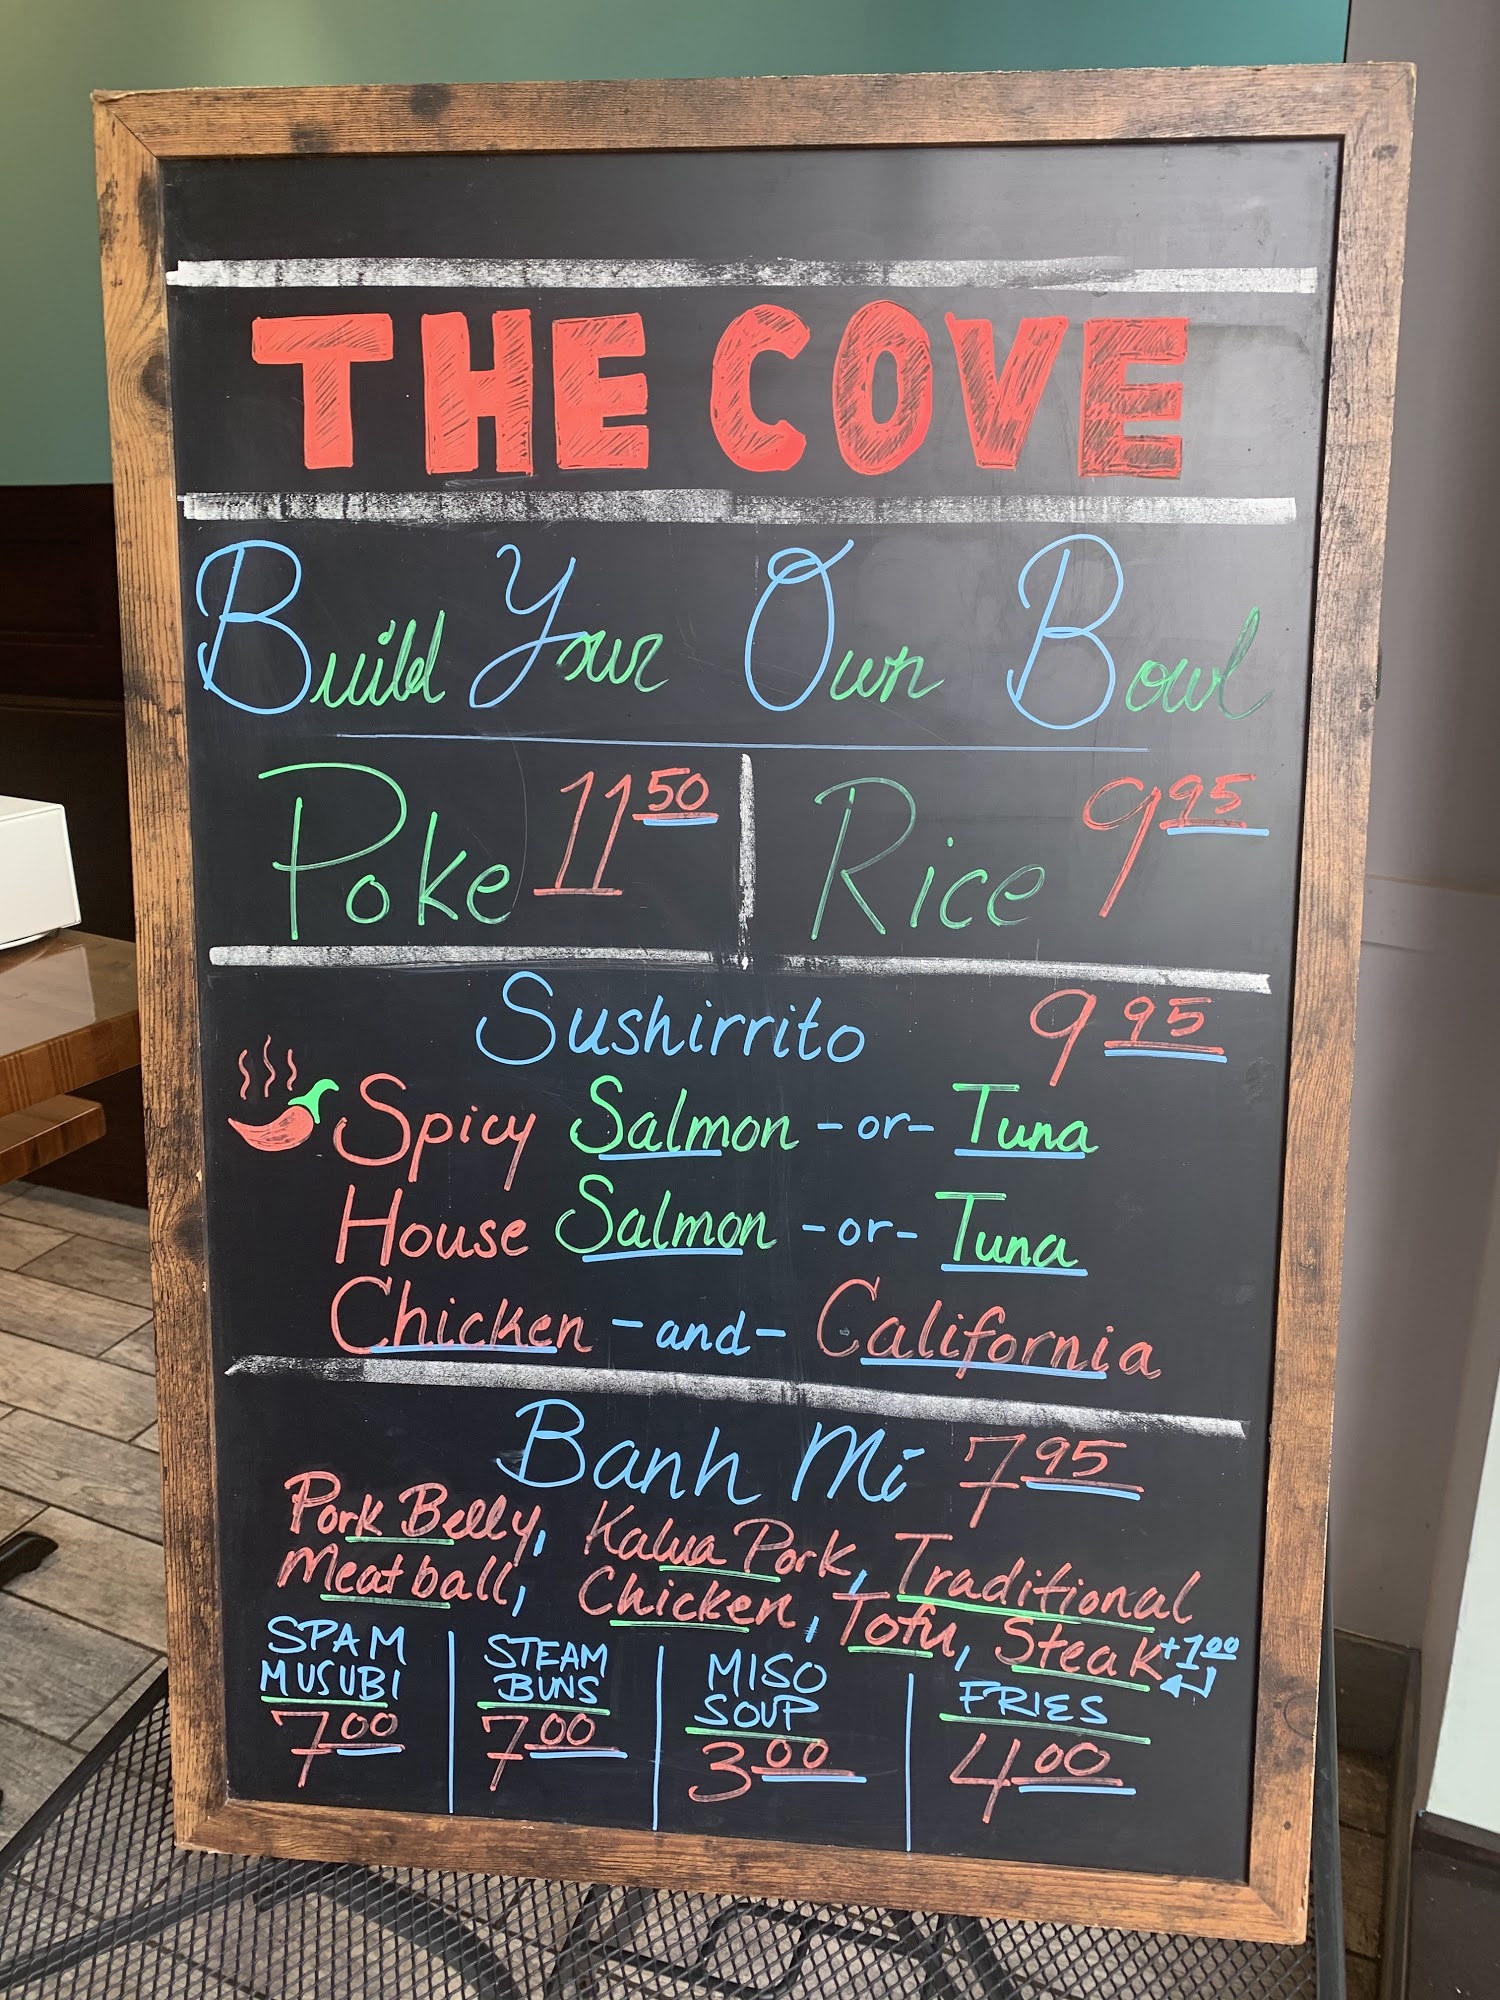 THE COVE
Build Your Own Bowl
Poke 11 50 Rice 9 95
Sushirrito 9 95
Spicy Salmon -or- Tuna
House Salmon -or- Tuna
Chicken -and- California
Banh Mi 7 95
Pork Belly, Kalua Pork, Traditional
Meatball, Chicken, Tofu, Steak +1 00
SPAM
MUSUBI
7 00
STEAM
BUNS
7 00
MISO
SOUP
3 00
FRIES
4 00